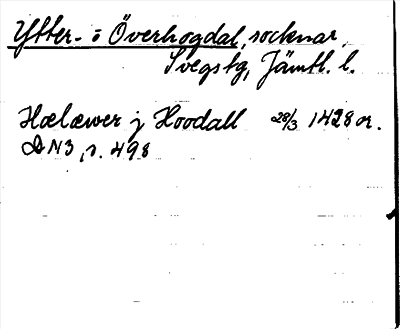 Ytter- o Överhogdal, socknar,
Svegs tg, Jämtl. l.
Hælæwer j Hoodall 28/3 1428 or.
DN 3, s. 498